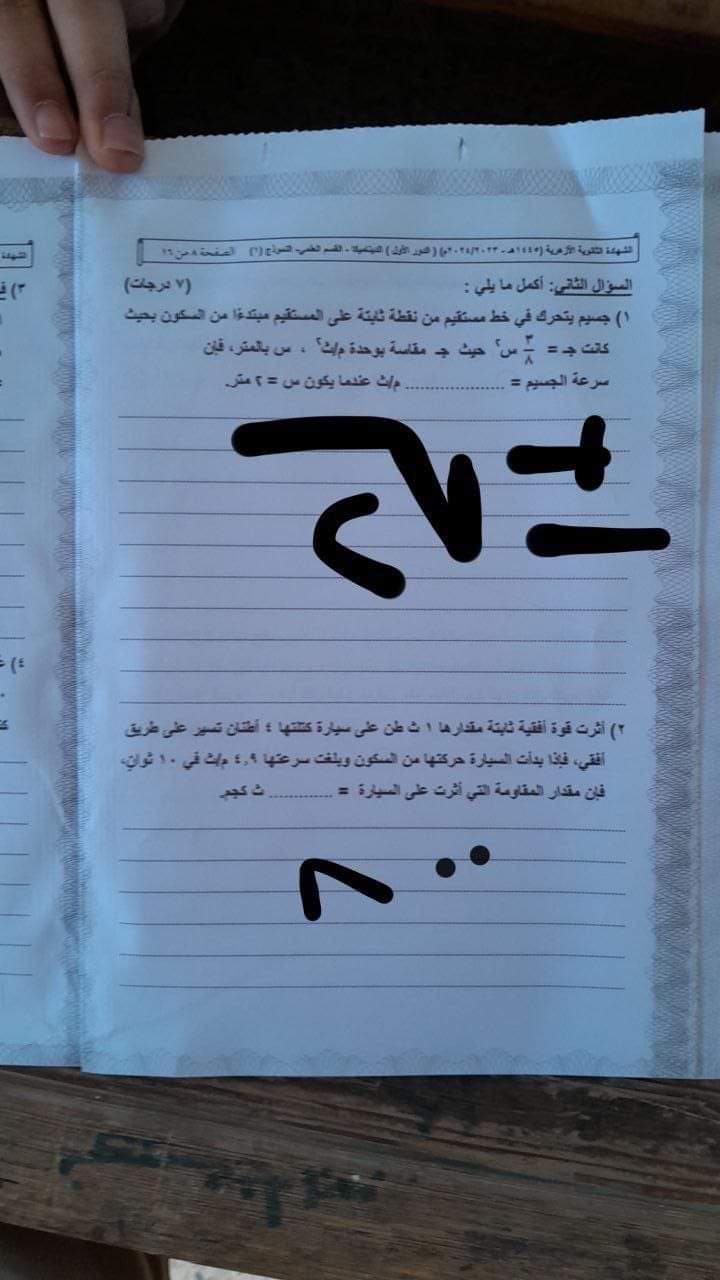 الشهادة الثانوية الأزهرية (١٤٤٥هـ - ٢٠٢٣/٢٠٢٤م) ( الدور الأول ) الديناميكا - القسم العلمي- النموذج (١) الصفحة ٨ من ١٦
السؤال الثاني: أكمل ما يلي : (٧ درجات)
١) جسيم يتحرك في خط مستقيم من نقطة ثابتة على المستقيم مبتدءًا من السكون بحيث
كانت جـ = ٣/٨ س٢ حيث جـ مقاسة بوحدة م/ث٢ ، س بالمتر، فإن
سرعة الجسيم = .................... م/ث عندما يكون س = ٢ متر.
±√٢
٢) أثرت قوة أفقية ثابتة مقدارها ١ ث طن على سيارة كتلتها ٤ أطنان تسير على طريق
أفقي، فإذا بدأت السيارة حركتها من السكون وبلغت سرعتها ٤,٩ م/ث في ١٠ ثوانٍ،
فإن مقدار المقاومة التي أثرت على السيارة = ............. ث كجم.
٨٠٠
الشهادة
٣)
٤)